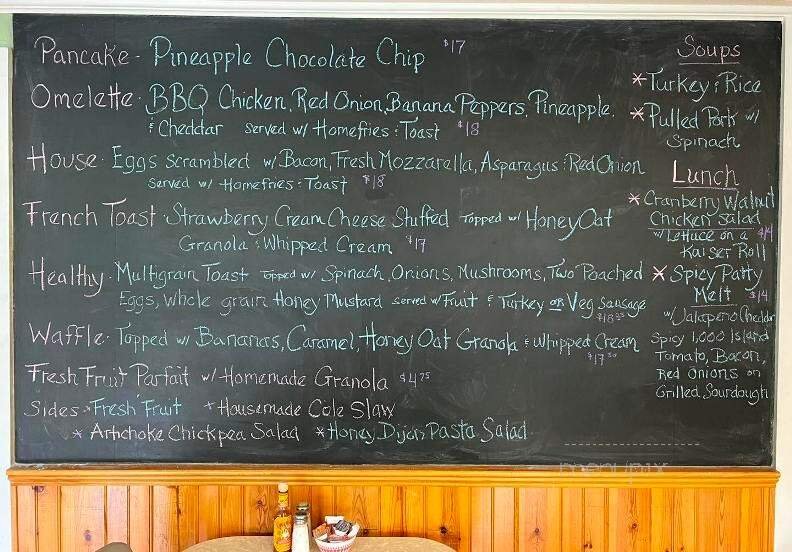 Pancake - Pineapple Chocolate Chip $17
Omelette - BBQ Chicken, Red Onion, Banana Peppers, Pineapple,
& Cheddar served w/ Homefries & Toast $18
House - Eggs scrambled w/ Bacon, Fresh Mozzarella, Asparagus & Red Onion
served w/ Homefries & Toast $18
French Toast - Strawberry Cream Cheese Stuffed topped w/ Honey Oat
Granola & Whipped Cream $17
Healthy - Multigrain Toast topped w/ Spinach, Onions, Mushrooms, Two Poached
Eggs, whole grain Honey Mustard served w/ Fruit & Turkey or Veg Sausage
$18
Waffle - Topped w/ Bananas, Caramel, Honey Oat Granola & Whipped Cream
$17 50
Fresh Fruit Parfait w/ Homemade Granola $4 75
Sides * Fresh Fruit * Housemade Cole Slaw
* Artichoke Chickpea Salad * Honey Dijon Pasta Salad
Soups
* Turkey & Rice
* Pulled Pork w/
Spinach
Lunch
* Cranberry Walnut
Chicken Salad
w/ Lettuce on a $14
Kaiser Roll
* Spicy Patty
Melt $14
w/ Jalapeno Cheddar
Spicy 1,000 Island
Tomato, Bacon,
Red Onions on
Grilled Sourdough
menupix